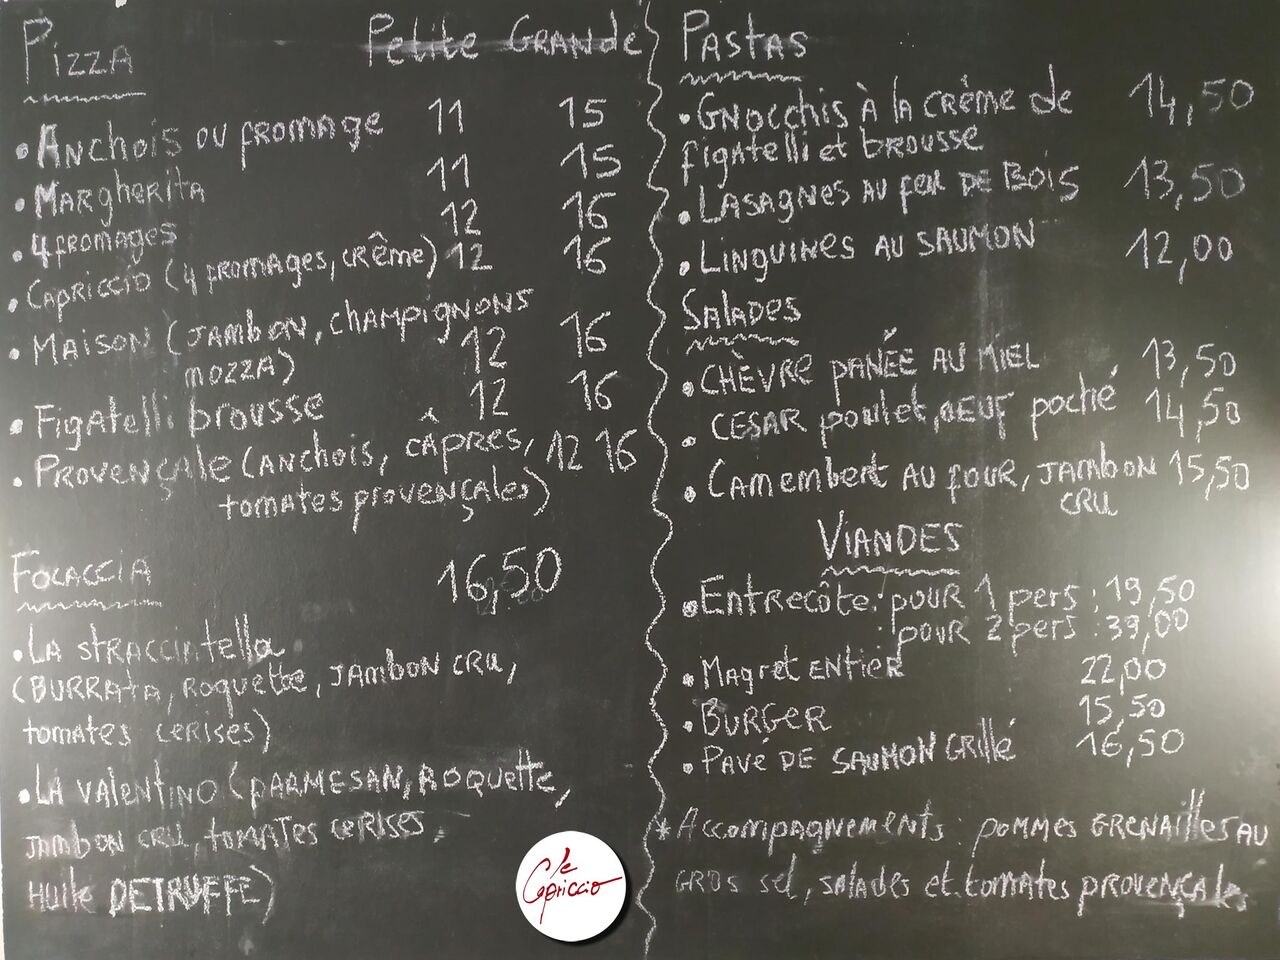 Pizza Petite Grande
• Anchois ou fromage 11 15
• Margherita 11 15
• 4 fromages 12 16
• Capriccio (4 fromages, crême) 12 16
• Maison (jambon, champignons
mozza) 12 16
• Figatelli brousse 12 16
• Provençale (anchois, câpres, 12 16
tomates provençales)
Focaccia 16,50
• La straccintella
(burrata, roquette, jambon cru,
tomates cerises)
• La valentino (parmesan, roquette,
jambon cru, tomates cerises,
huile de truffe)
Pastas
• Gnocchis à la crême de 14,50
figatelli et brousse
• Lasagnes au feu de bois 13,50
• Linguines au saumon 12,00
Salades
• Chèvre panée au miel 13,50
• Cesar poulet, oeuf poché 14,50
• Camembert au four, jambon 15,50
cru
Viandes
• Entrecôte : pour 1 pers : 19,50
: pour 2 pers : 39,00
• Magret entier 22,00
• Burger 15,50
• Pavé de saumon grillé 16,50
* Accompagnements : pommes grenailles au
gros sel, salades et tomates provençales
le Capriccio